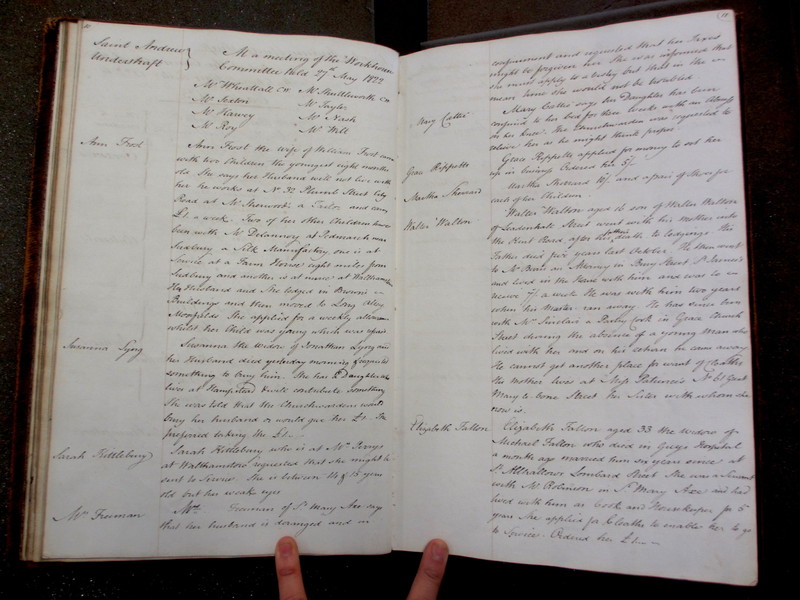 Saint Andrew
Undershaft
At a meeting of the Workhouse
Committee held 27th May 1822
Mr Whattall CW Mr Shuttleworth CW
Mr Sexton Mr Taylor
Mr Harvey Mr Nash
Mr Roy Mr Will
Ann Frost
Ann Frost the wife of William Frost came
with two Children the youngest eight months
old She says her Husband will not live with
her he works at No 32 Plumb Street City
Road at Mr Sherwood's a Tailor and earns
£1. a week. Two of her other Children have
been with Mr Delanney at near
Sudbury a Silk Manufactory one is at
Service at a Farm House eight miles from
Sudbury and another is at nurse at Walthamstow
Her Husband and She lodged in Browns
Buildings and then moved to Long Alley
Moorfields She applied for a weekly allowance
whilst her Child was young which was
Susanna
Susanna the widow of Jonathan
her Husband died yesterday morning & requested
something to bury him. She has a Daughter who
lives at Hampstead & will contribute something
She was told that the Churchwardens would
bury her husband or would give her £1. She
preferred taking the £1.
Sarah Kettlebury
Sarah Kettlebury who is at Mr Perrys
at Walthamstow requested that she might be
sent to Service She is between 14 & 15 years
old but has weak eyes
Mrs Freeman
Mrs Freeman of St Mary Axe says
that her husband is deranged and in
confinement and requested that her Taxes
might be forgiven her She was informed that
she must apply to a but that in the
mean time she would not be troubled
Mary Collie
Mary Collie says her Daughter has been
confined to her bed for three weeks with an Abscess
on her knee. The Churchwarden was requested to
relieve her as he might think proper
Grace Rippette
Grace Rippette applied for money to set her
up in business Ordered her 5/-
Martha Sherrard
Martha Sherrard 10/. and a pair of Shoes for
each of her Children
Walter Walton
Walter Walton aged 16 son of Walter Walton
of Leadenhall Street went with his Mother into
the Kent Road after his father's death to lodgings His
Father died five years last October. He then went
to Mr Binns an Attorney in Bury Street St James's
and lived in the House with him and was to
receive 7/. a week He was with him two years
when his Master ran away He has since been
with Mr Sinclair a Pastry Cook in Grace Church
Street during the absence of a young Man who
lived with him and on his return he came away
He cannot get another place for want of Cloaths
His Mother lives at Miss No 61 Great
Mary le bone Street his Sister with whom he
now is.
Elizabeth Fallon
Elizabeth Fallon aged 33 the widow of
Michael Fallon who died in Guys Hospital
a month ago married him six years since at
St Allhallows Lombard Street She was a Servant
with Mr Robinson in St Mary Axe and had
lived with him as Cook and Housekeeper for 5
years She applied for Cloaths to enable her to go
to Service. Ordered her £1.